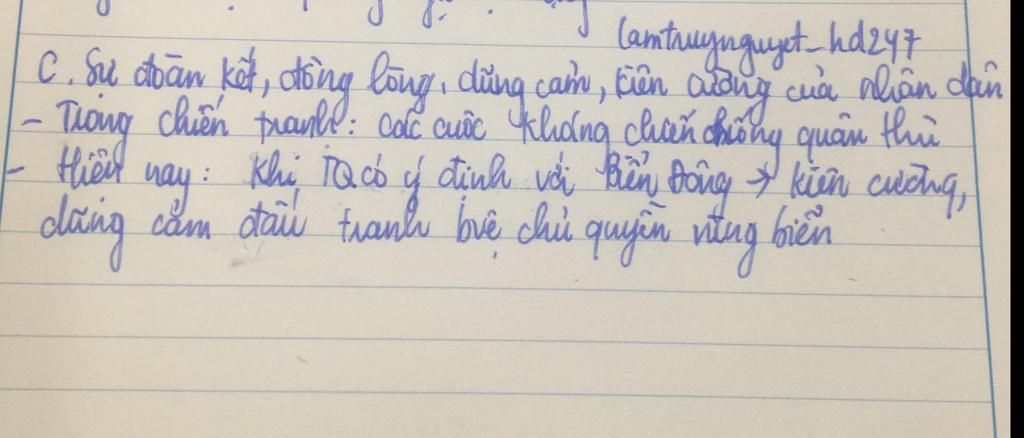 lamtruynguyet_hd247
c. Sự đoàn kết, đồng lòng, dũng cảm, kiên cường của nhân dân
- Trong chiến tranh: các cuộc kháng chiến chống quân thù
- Hiện nay: Khi TQ có ý định với Biển Đông → kiên cường,
dũng cảm đấu tranh bvệ chủ quyền vùng biển